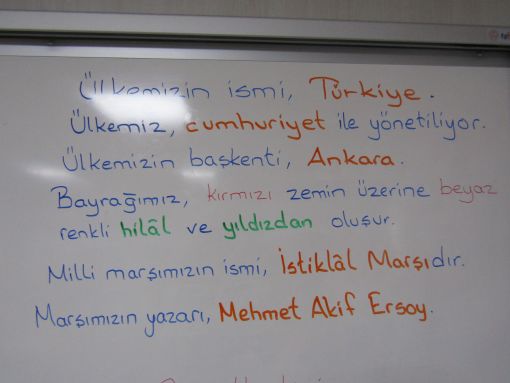 Ülkemizin ismi, Türkiye.
Ülkemiz, cumhuriyet ile yönetiliyor.
Ülkemizin başkenti, Ankara.
Bayrağımız, kırmızı zemin üzerine beyaz
renkli hilâl ve yıldızdan oluşur.
Milli marşımızın ismi, İstiklâl Marşıdır.
Marşımızın yazarı, Mehmet Akif Ersoy.